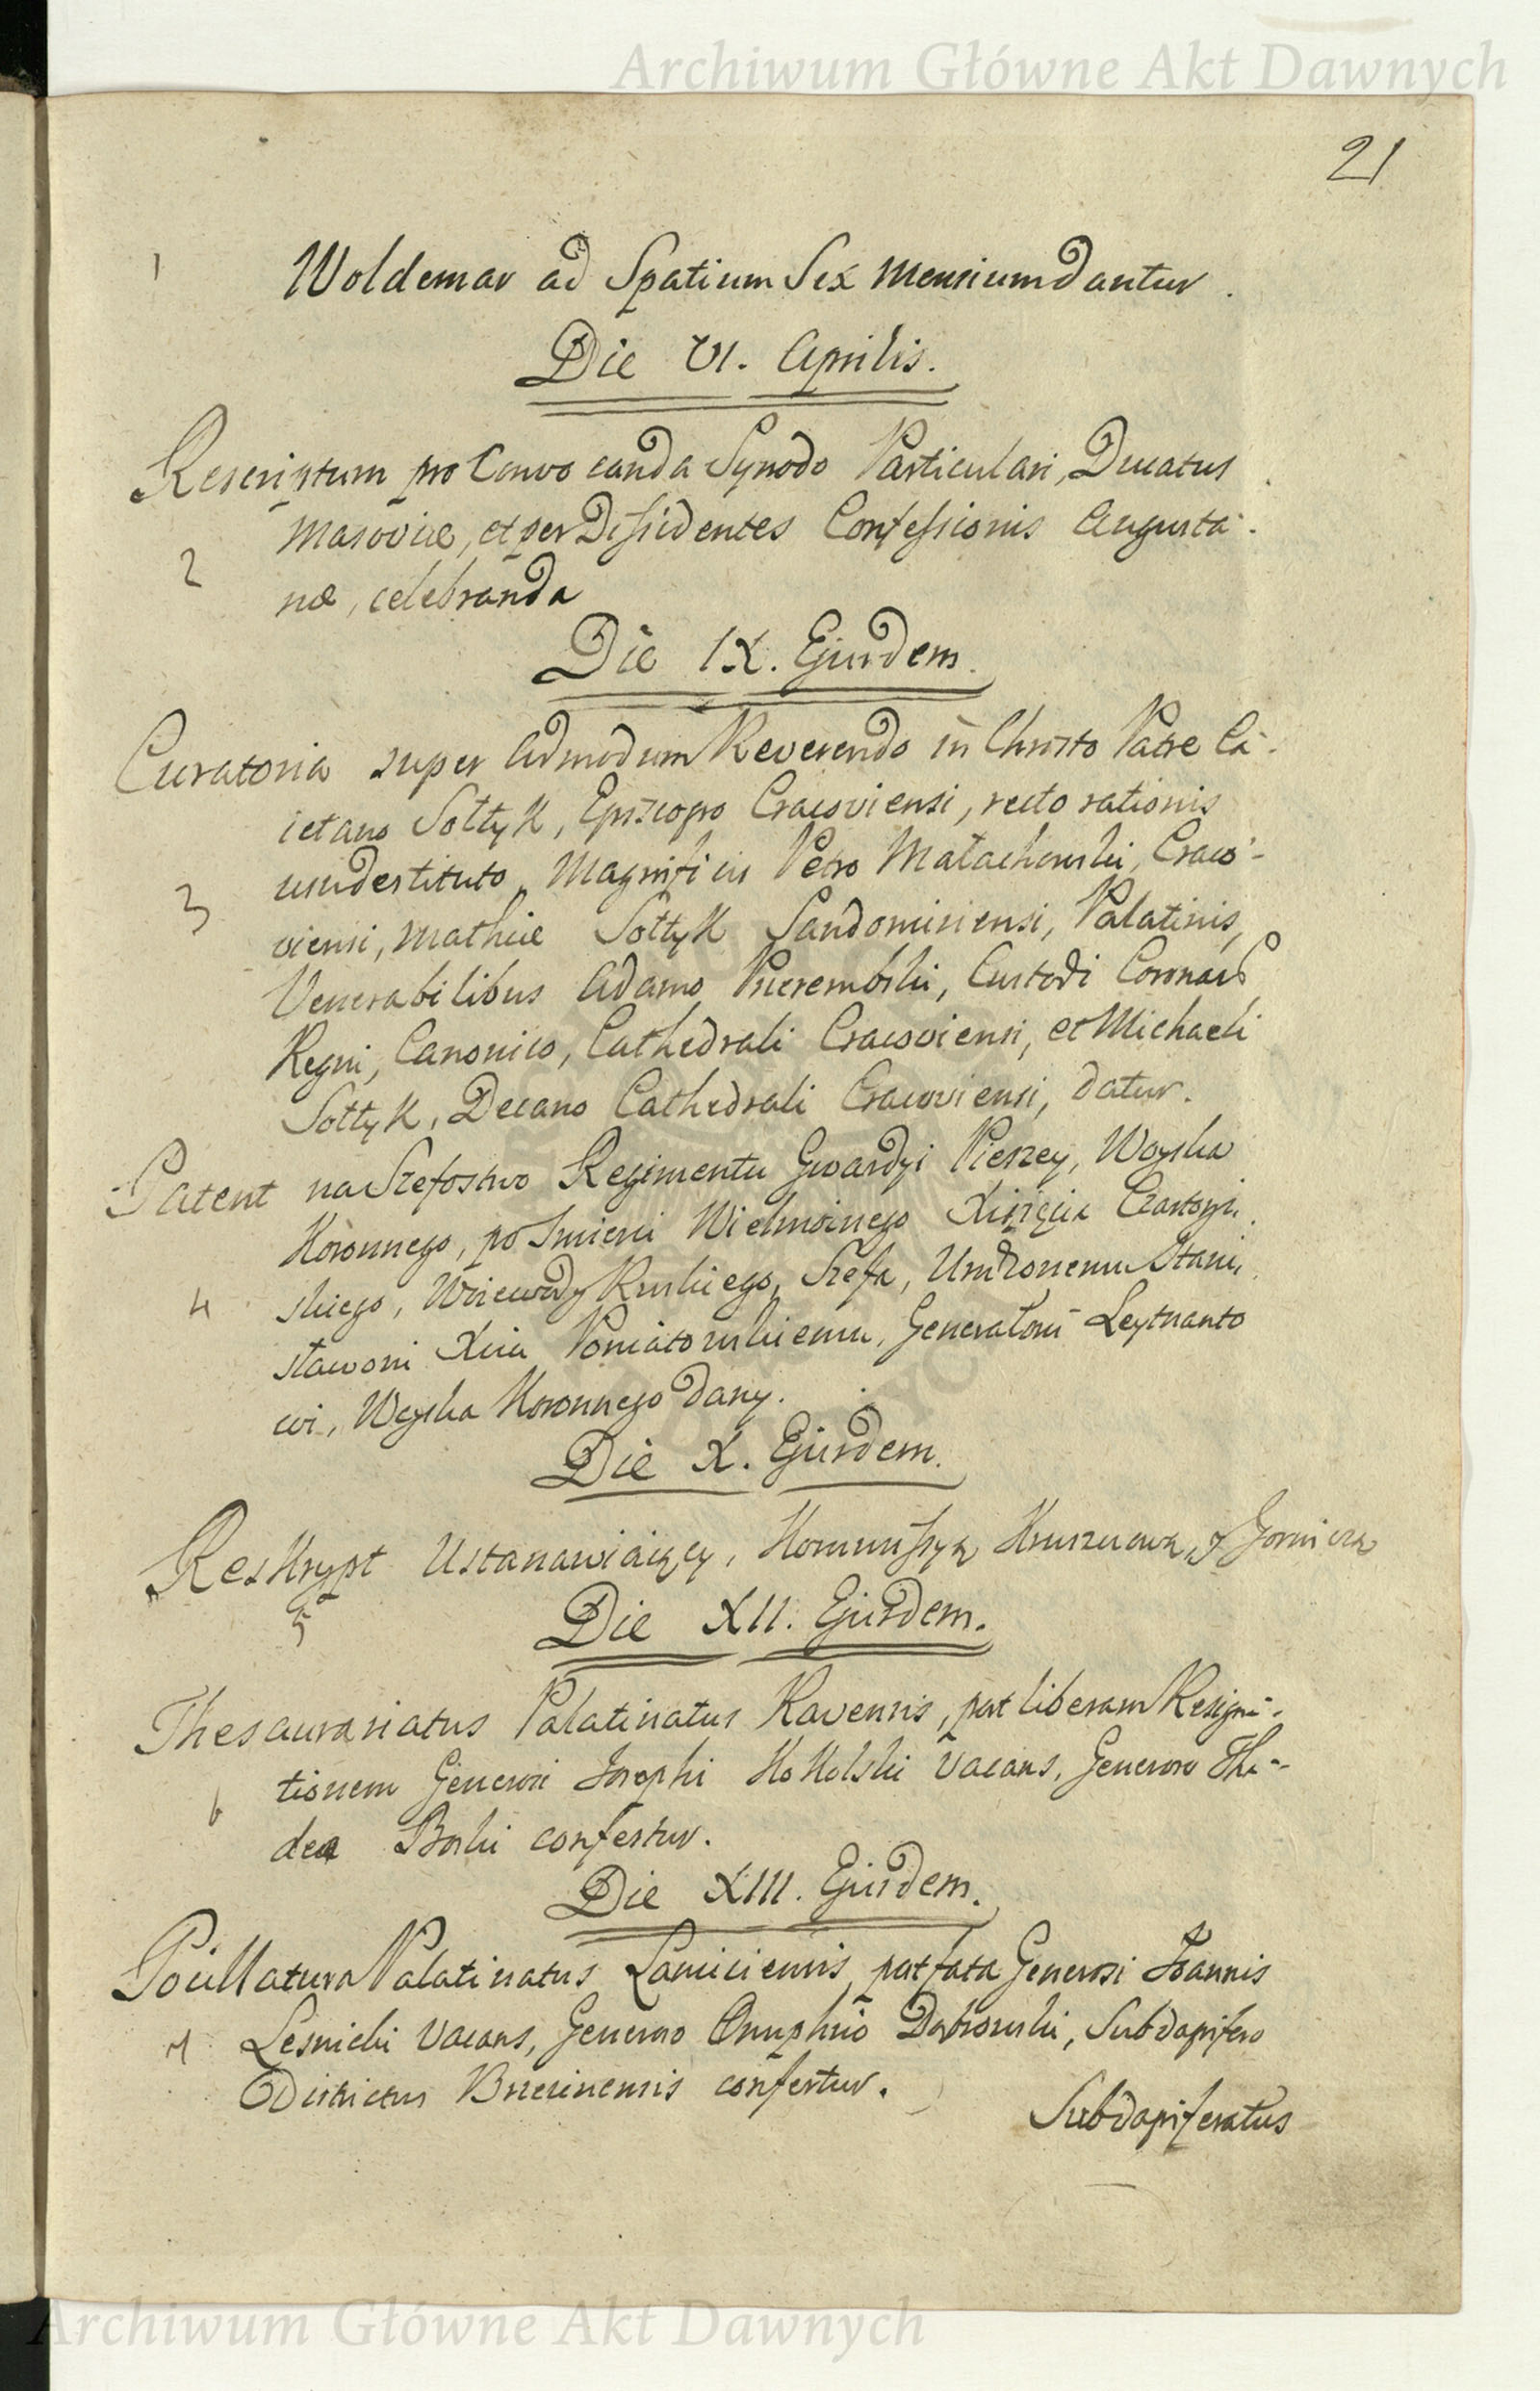 Archiwum Główne Akt Dawnych
21
1
Woldemar ad Spatium Sex Mensium dantur.
Die VI. Aprilis.
Rescriptum pro Convocanda Synodo Particulari, Ducatus
Masoviæ, et per Dissidentes Confessionis Augusta-
2
næ, celebranda
Die IX. Ejusdem.
Curatoria super Admodum Reverendo in Christo Patre Ca-
ietano Sołtyk, Episcopo Cracoviensi, recto rationis
usu destituto, Magnificis Petro Małachowski, Craco-
3
viensi, Mathiæ Sołtyk Sandomiriensi, Palatinis,
Venerabilibus Adamo Przerembski, Custodi Coronarum
Regni, Canonico, Cathedrali Cracoviensi, et Michaeli
Sołtyk, Decano Cathedrali Cracoviensi, datur.
Patent na Szefostwo Regimentu Gwardyi Pieszey, Woyska
Koronnego, po Smierci Wielmożnego Xiążęcia Czartoryi-
4
skiego, Woiewody Ruskiego, Szefa, Urodzonemu Stani-
sławowi Xciu Poniatowskiemu, Generałowi Leytnanto
wi, Woyska Koronnego dany.
Die X. Ejusdem.
Reskrypt Ustanawiaiący, Kommissyą Kruszcową, y Gorniczą
5
Die XII. Ejusdem.
Thesaurariatus Palatinatus Ravensis, post liberam Resigna-
tionem Generosi Josephi Kokolski vacans, Generoso Tha-
6
dea Borski confertur.
Die XIII. Ejusdem.
Pocillatura Palatinatus Lanciciensis, post fata Generosi Joannis
Lesnicki vacans, Generoso Onuphrio Dabrowski, Subdapifero
7
Districtus Brzezinensis confertur.
Subdapiferatus
Archiwum Główne Akt Dawnych